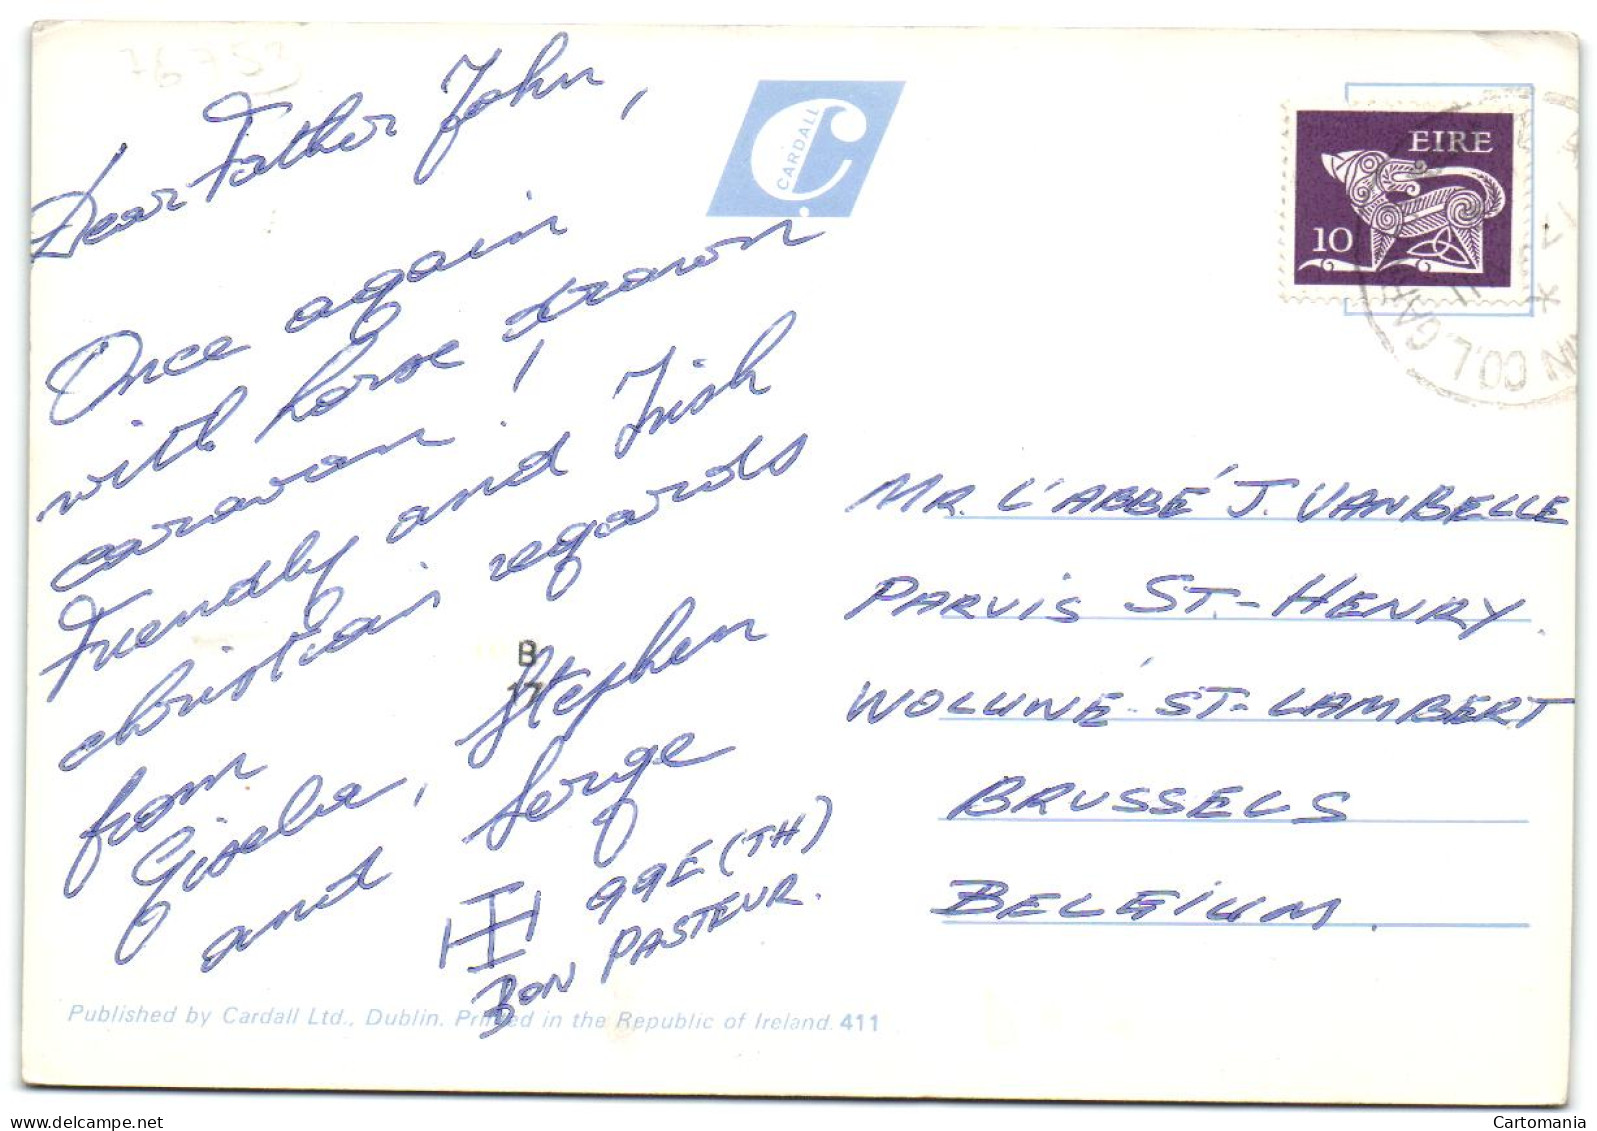 76753
Dear Father John,
Once again
with horse drawn
caravan !
Friendly and Irish
christian regards
from
Gisela, Stephen
and Serge
99E (TH)
BON PASTEUR.
B
17
CARDALL
EIRE
10
CO.
MR. L'ABBÉ J. VANBELLE
PARVIS ST.-HENRY.
WOLUWÉ-ST-LAMBERT
BRUSSELS
BELGIUM.
Published by Cardall Ltd., Dublin. Printed in the Republic of Ireland. 411
Cartomania